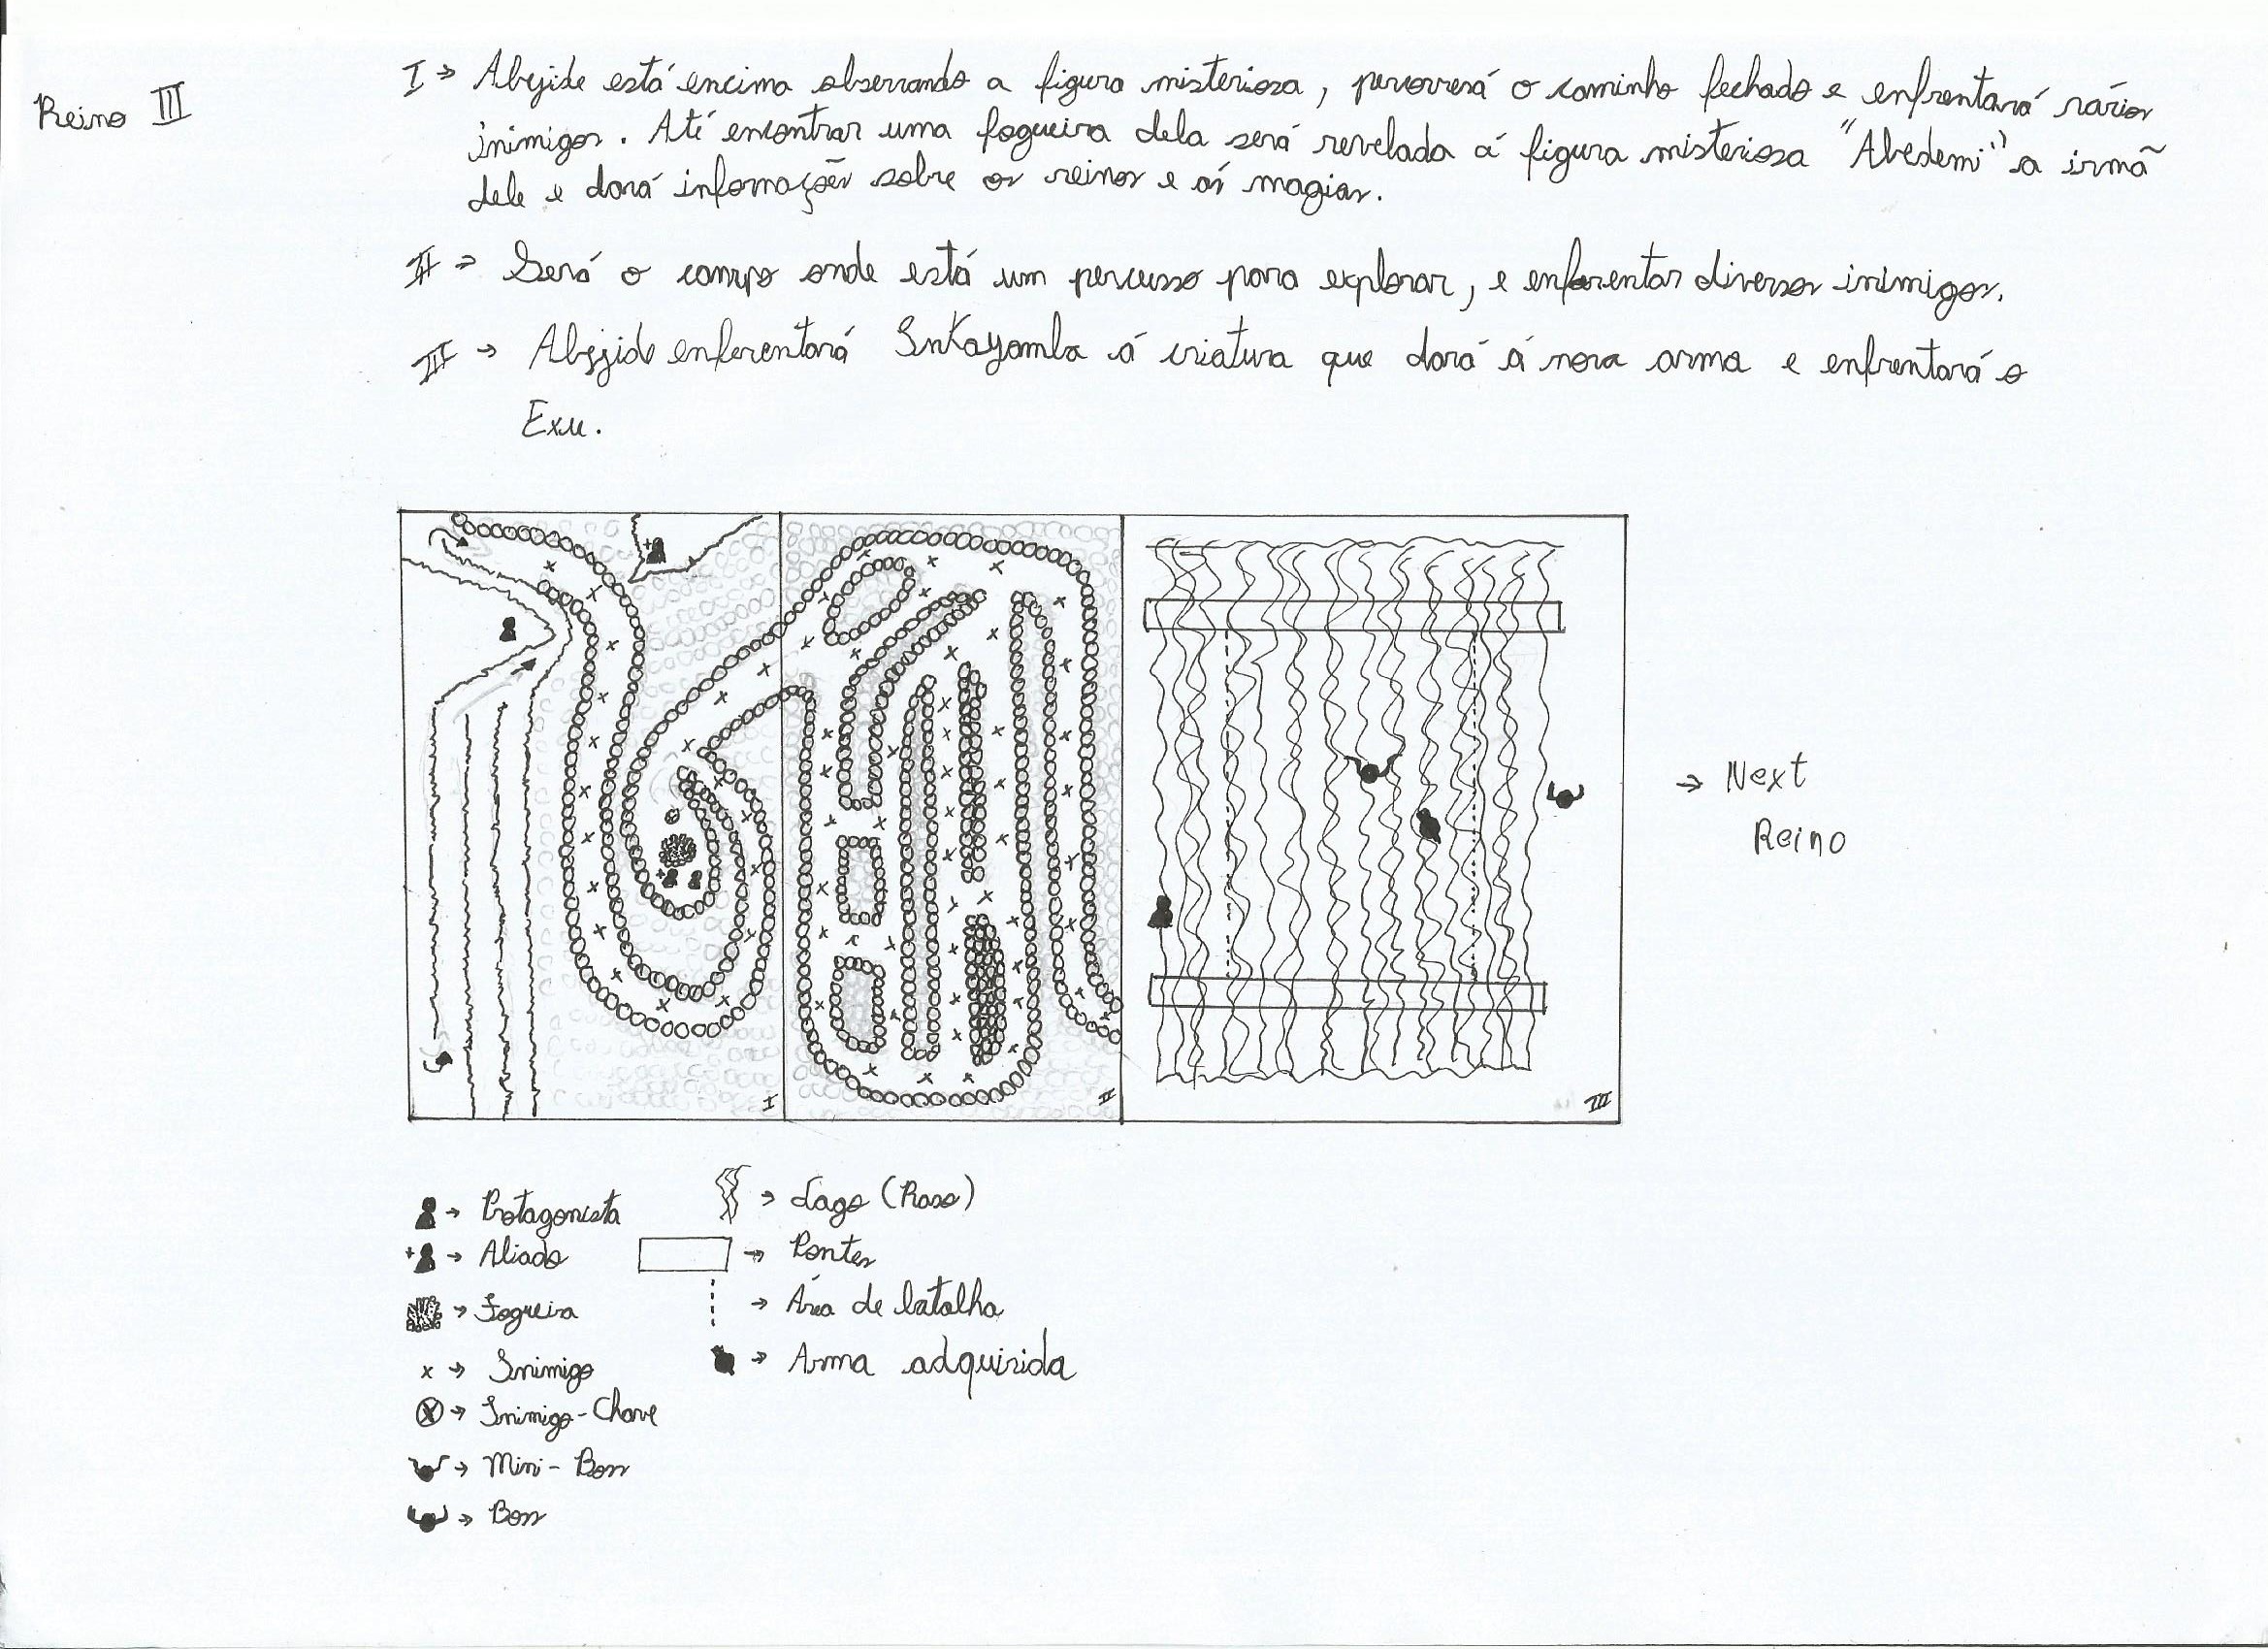 Reino III
I → Abejide está encima observando a figura misteriosa, percorrerá o caminho fechado e enfrentará vários
inimigos. Até encontrar uma fogueira dela será revelada á figura misteriosa "Abedemi" a irmã
dele e dará informações sobre os reinos e ás magias.
II → Será o campo onde está um percusso para explorar, e enfrentar diversos inimigos.
III → Abejide enferentará Inkayamba á criatura que dará á nova arma e enfrentará o
Exu.
I
II
III
→ Next
Reino
→ Protagonista
→ Aliado
→ Fogueira
x → Inimigo
→ Inimigo-Chave
→ Mini-Boss
→ Boss
→ Lago (Raso)
→ Pontes
→ Área de batalha
→ Arma adquirida